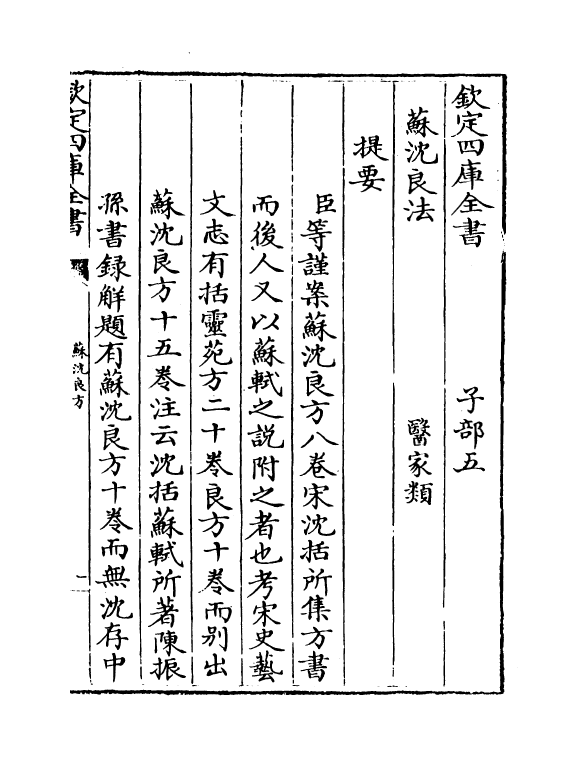 欽定四庫全書 子部五
蘇沈良法 醫家類
提要
臣等謹案蘇沈良方八卷宋沈括所集方書
而後人又以蘇軾之説附之者也考宋史藝
文志有括靈苑方二十卷良方十卷而别出
蘇沈良方十五卷注云沈括蘇軾所著陳振
孫書録解題有蘇沈良方十卷而無沈存中
欽定四庫全書 蘇沈良方 一